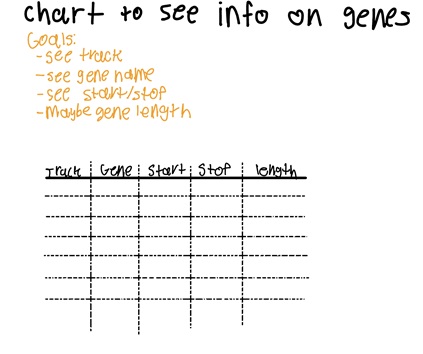 chart to see info on genes
Goals:
-see track
-see gene name
-see start/stop
-Maybe gene length
Track Gene Start Stop length